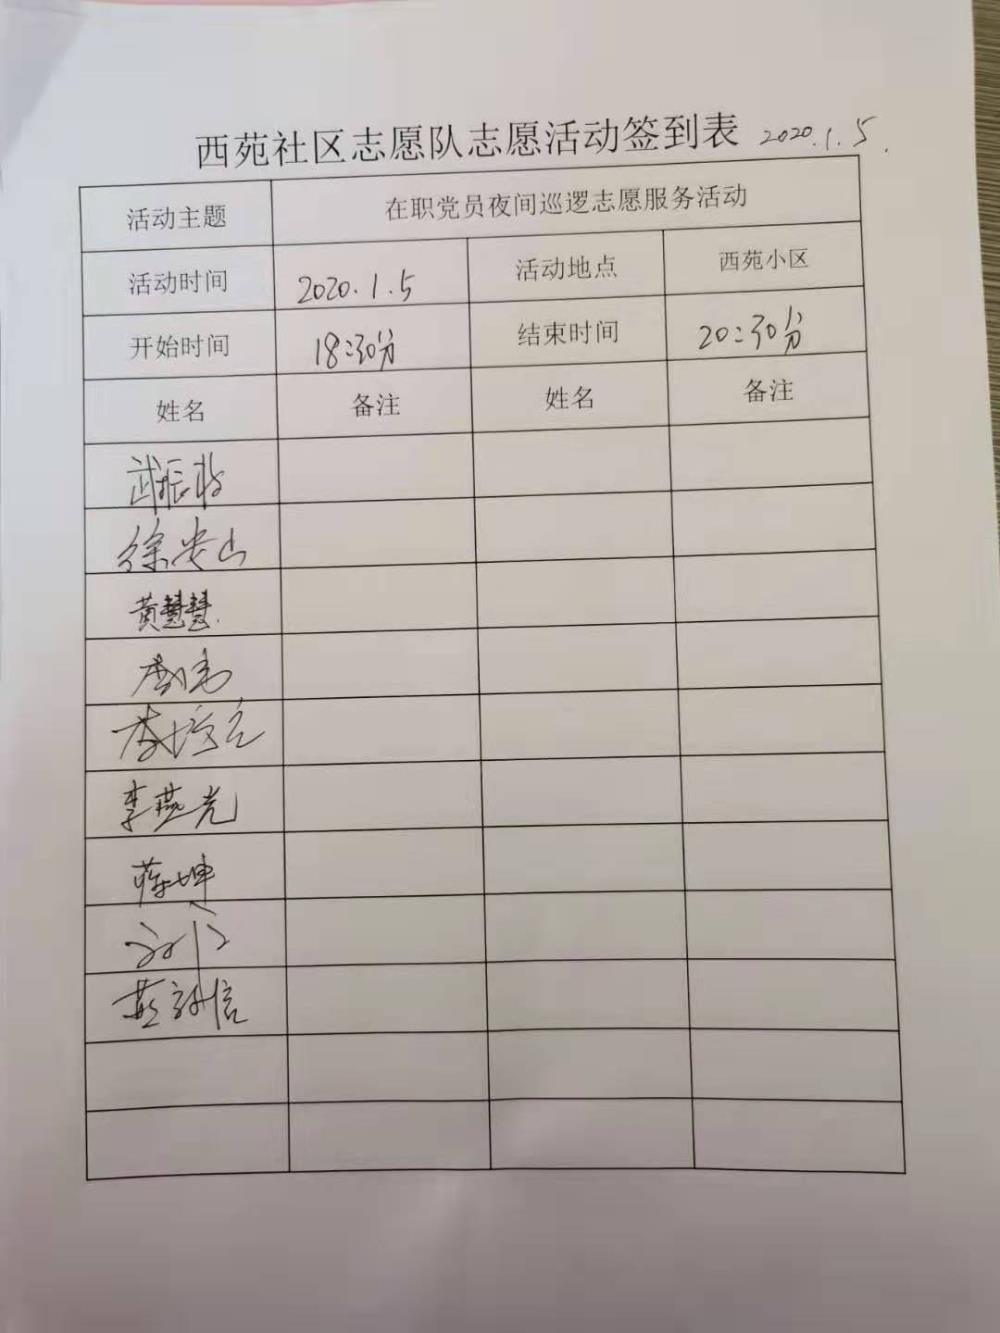 西苑社区志愿队志愿活动签到表 2020.1.5.
活动主题 在职党员夜间巡逻志愿服务活动
活动时间 2020.1.5 活动地点 西苑小区
开始时间 18:30分 结束时间 20:30分
姓名 备注 姓名 备注
武振
徐安山
黄慧慧
李燕光
蒋坤